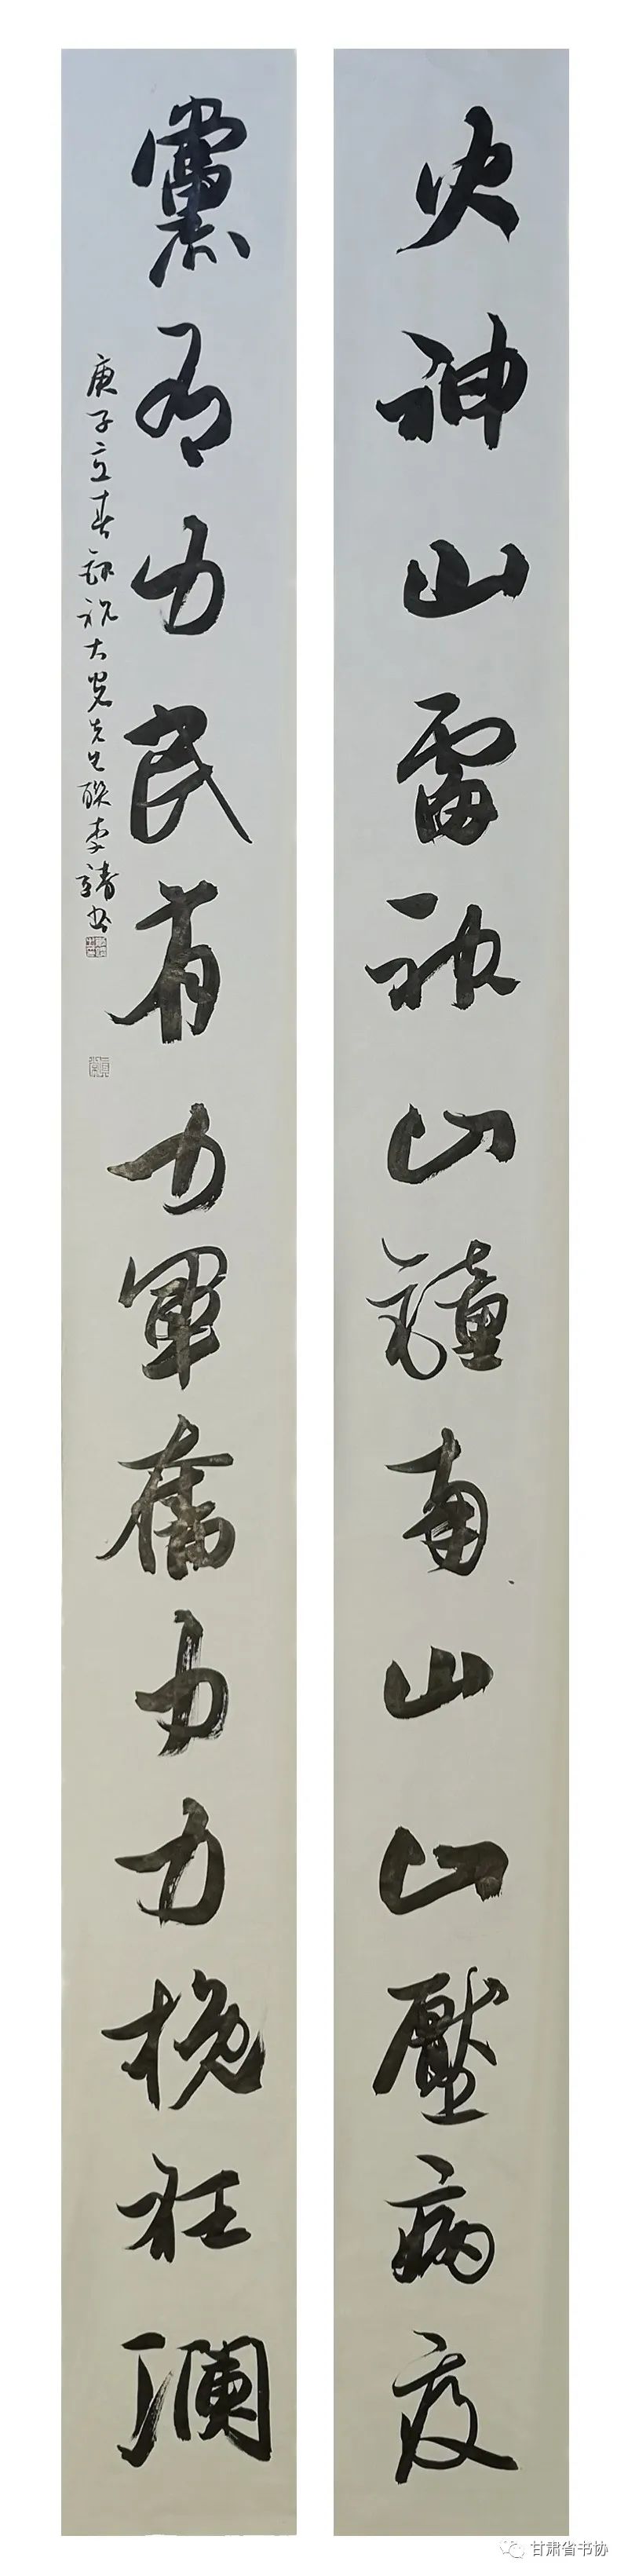 火神山雷神山鐘南山山壓病疫
黨有力民有力軍奮力力挽狂瀾
庚子立春敬祝大覺先生联李靖书
甘肃省书协